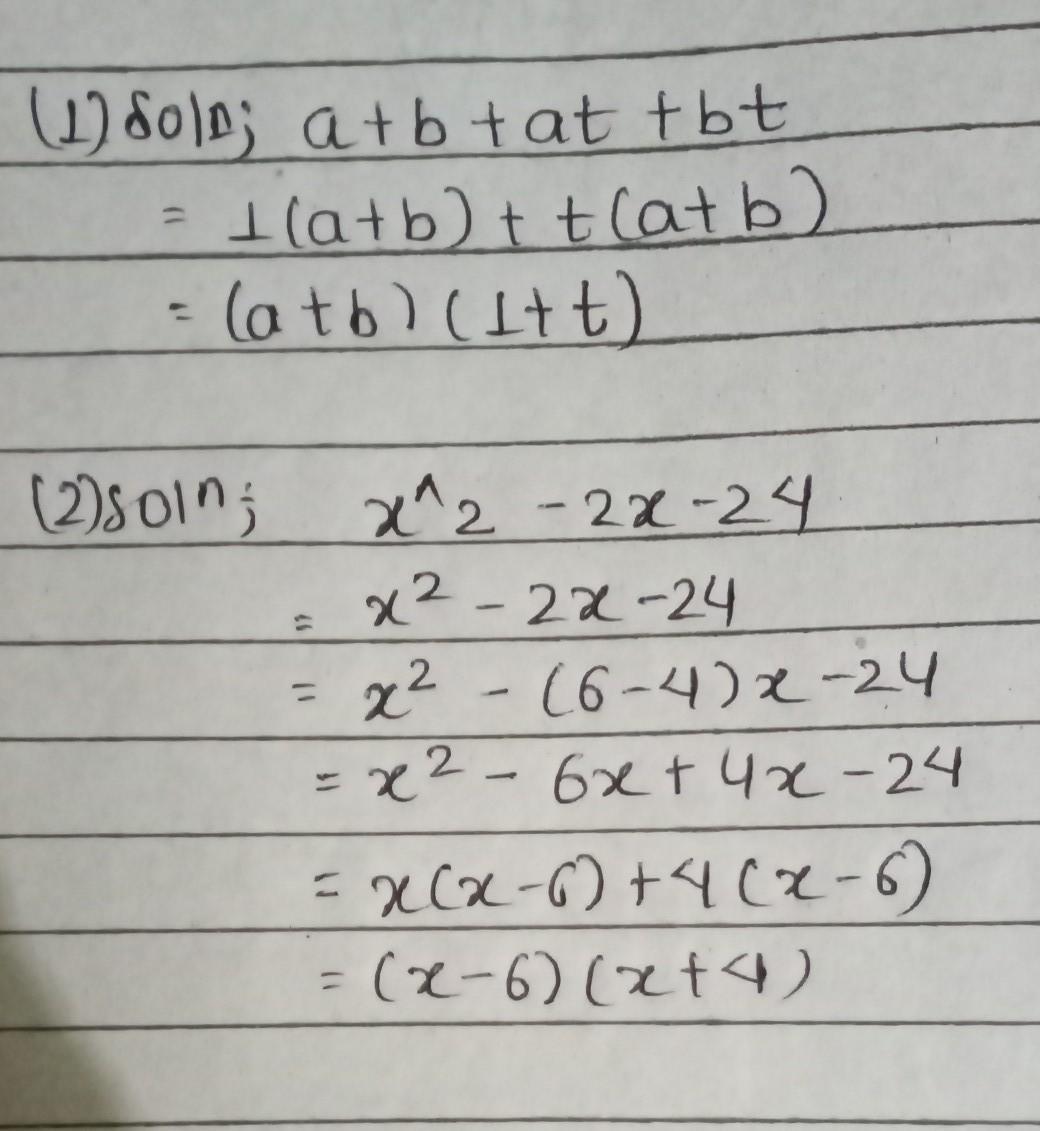 (1) soln; a+b+at+bt
= 1(a+b)+t(a+b)
= (a+b)(1+t)
(2) soln; x^2 -2x-24
= x² - 2x -24
= x² - (6-4)x -24
= x² - 6x + 4x - 24
= x(x-6)+4(x-6)
= (x-6)(x+4)